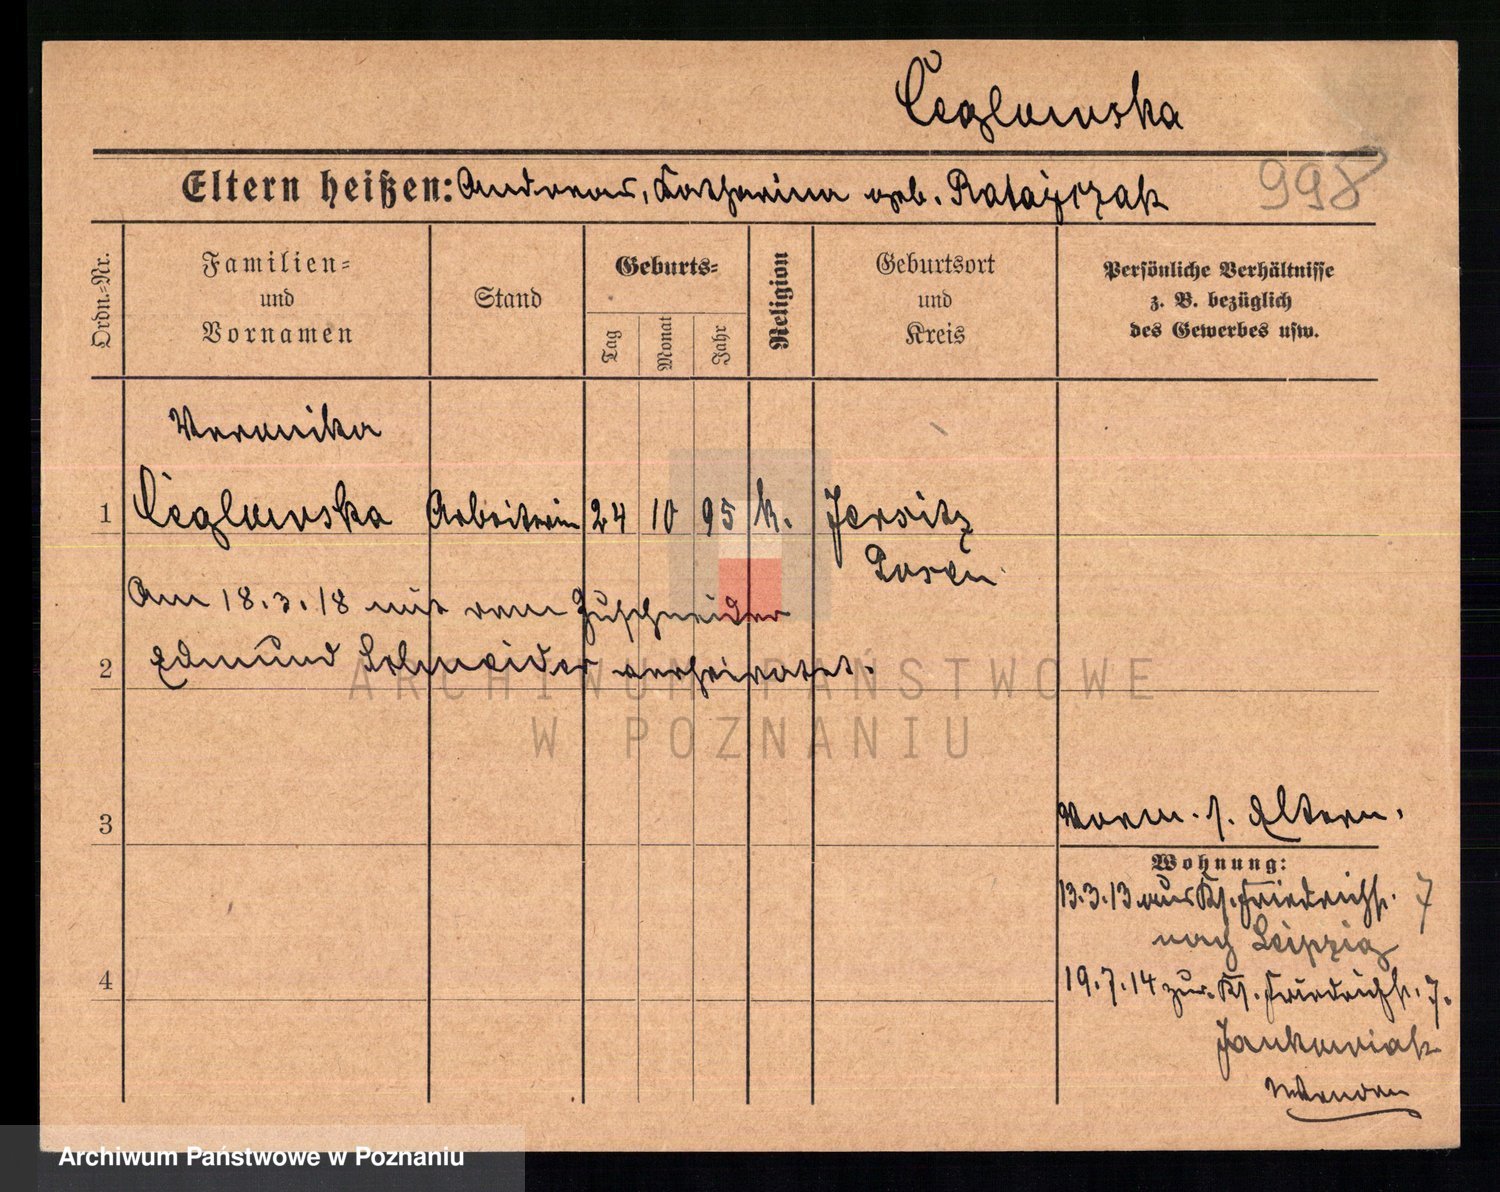 Ceglowska
Eltern heißen: Andreas, Katharina geb. Ratajczak
998
Ordn.-Nr.
Familien- und Vornamen
Stand
Geburts-
Tag
Monat
Jahr
Religion
Geburtsort und Kreis
Persönliche Verhältnisse
z. B. bezüglich
des Gewerbes usw.
Veronika
1 Ceglowska Arbeiterin 24 10 95 k. Jersitz
Posen
Am 18.3.18 mit dem Zuschneider
2 Edmund Schneider verheiratet.
ARCHIWUM PAŃSTWOWE
W POZNANIU
3
Vorm. s. Eltern.
Wohnung:
13.3.13 aus Kl. Friedrichs. 7
nach Leipzig
4
19.7.14 zur. Kl. Friedrichs. 7.
Jankowiak
Archiwum Państwowe w Poznaniu